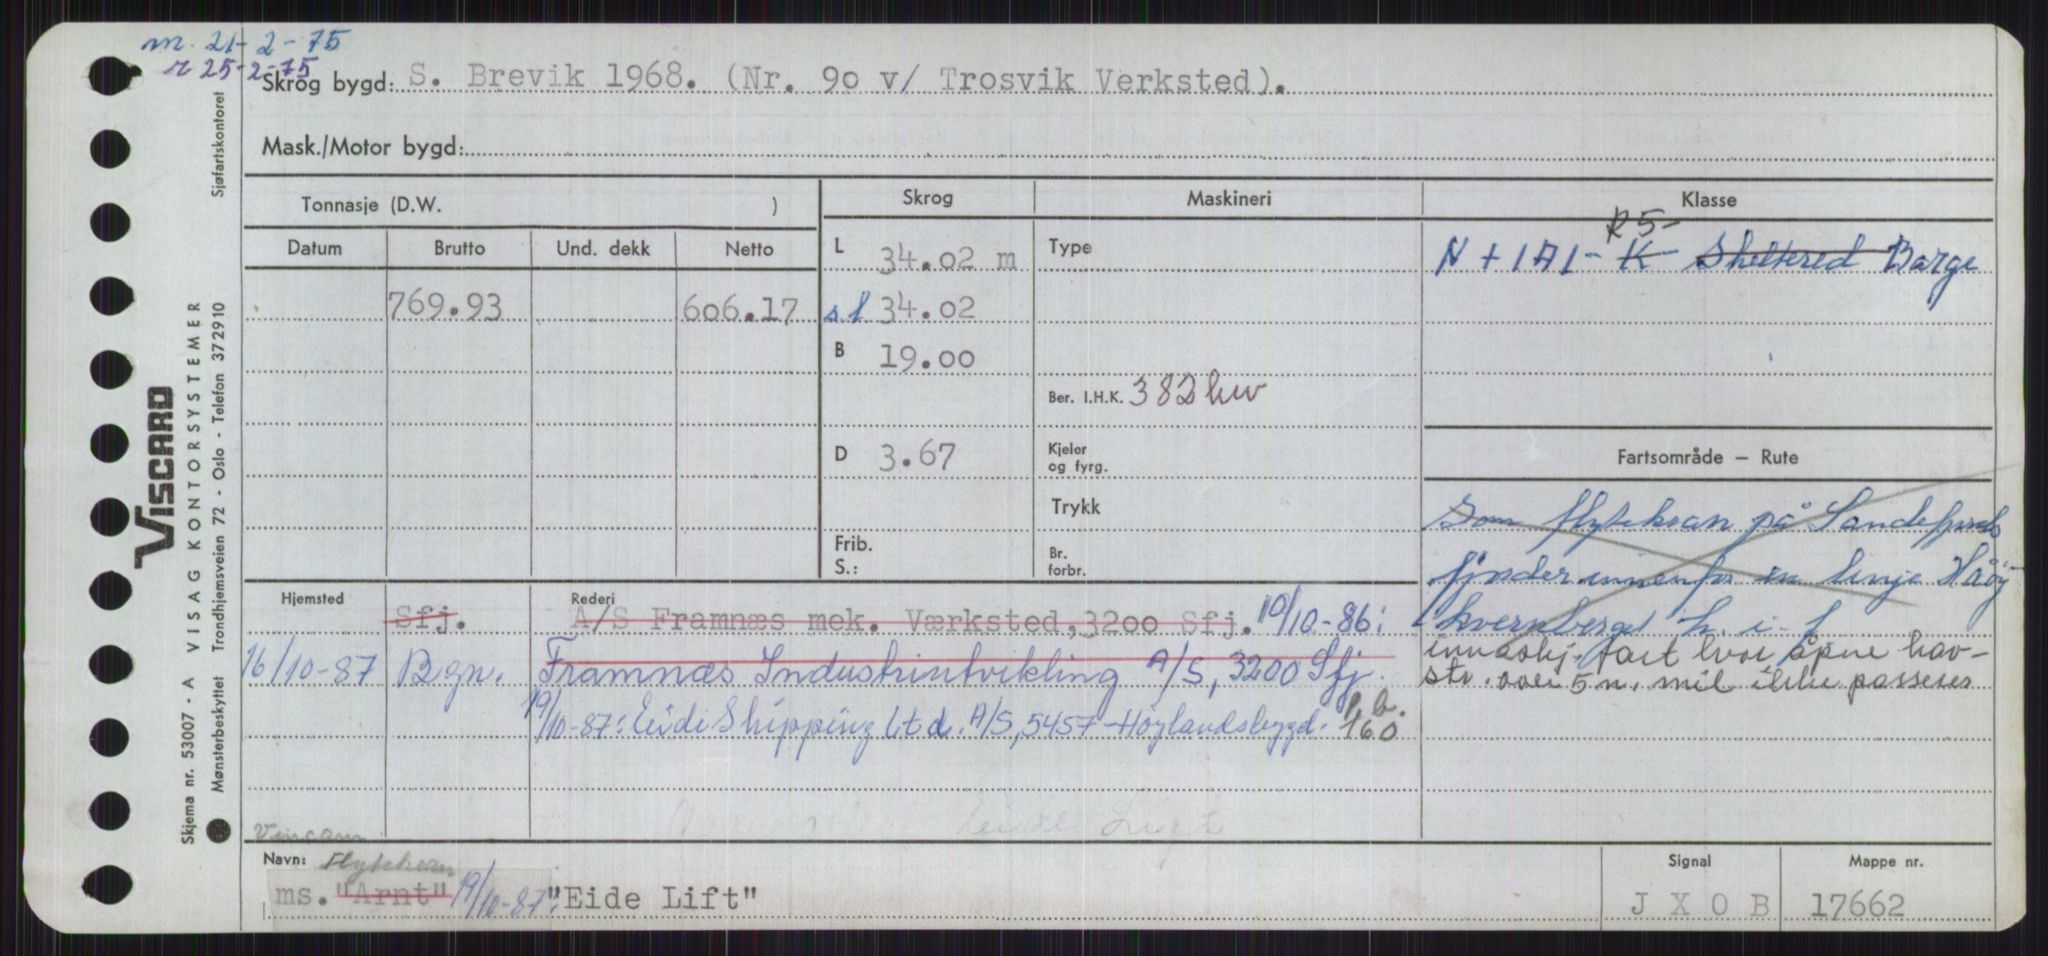 m. 21-2-75
r 25-2-75
Skrog bygd: S. Brevik 1968. (Nr. 90 v/ Trosvik Verksted).
Mask./Motor bygd:
Tonnasje (D.W. )
Skrog
Maskineri
Klasse
Datum Brutto Und. dekk Netto
769.93 606.17
L 34.02 m
s.l 34.02
B 19.00
D 3.67
Frib.
S.:
Type
Ber. I.H.K. 382 kw
Kjeler
og fyrg.
Trykk
Br.
forbr.
R5-
N + 1A1 - K - Sheltered Barge
Fartsområde — Rute
Som flytekran på Sandefjords
fjorden innenfor en linje
h. i. f
innaskj. fart hvor åpne hav-
str. over 5 n. mil ikke passeres
Hjemsted Rederi
Sfj. A/S Framnæs mek. Værksted, 3200 Sfj. 10/10-86:
16/10-87 Bgn. Framnæs Industriutvikling A/S, 3200 Sfj.
19/10-87: Eide Shipping Ltd. A/S, 5457 Høylandsbygd. p.b. 160
Eide Lift
Vincam
Navn: Flytekran
ms. "Arnt" 19/10-87: "Eide Lift"
Signal
J X O B
Mappe nr.
17662
VISCARD
VISAG KONTORSYSTEMER
Skjema nr. 53007 - A
Mønsterbeskyttet Trondhjemsveien 72 - Oslo - Telefon 372910
Sjøfartskontoret